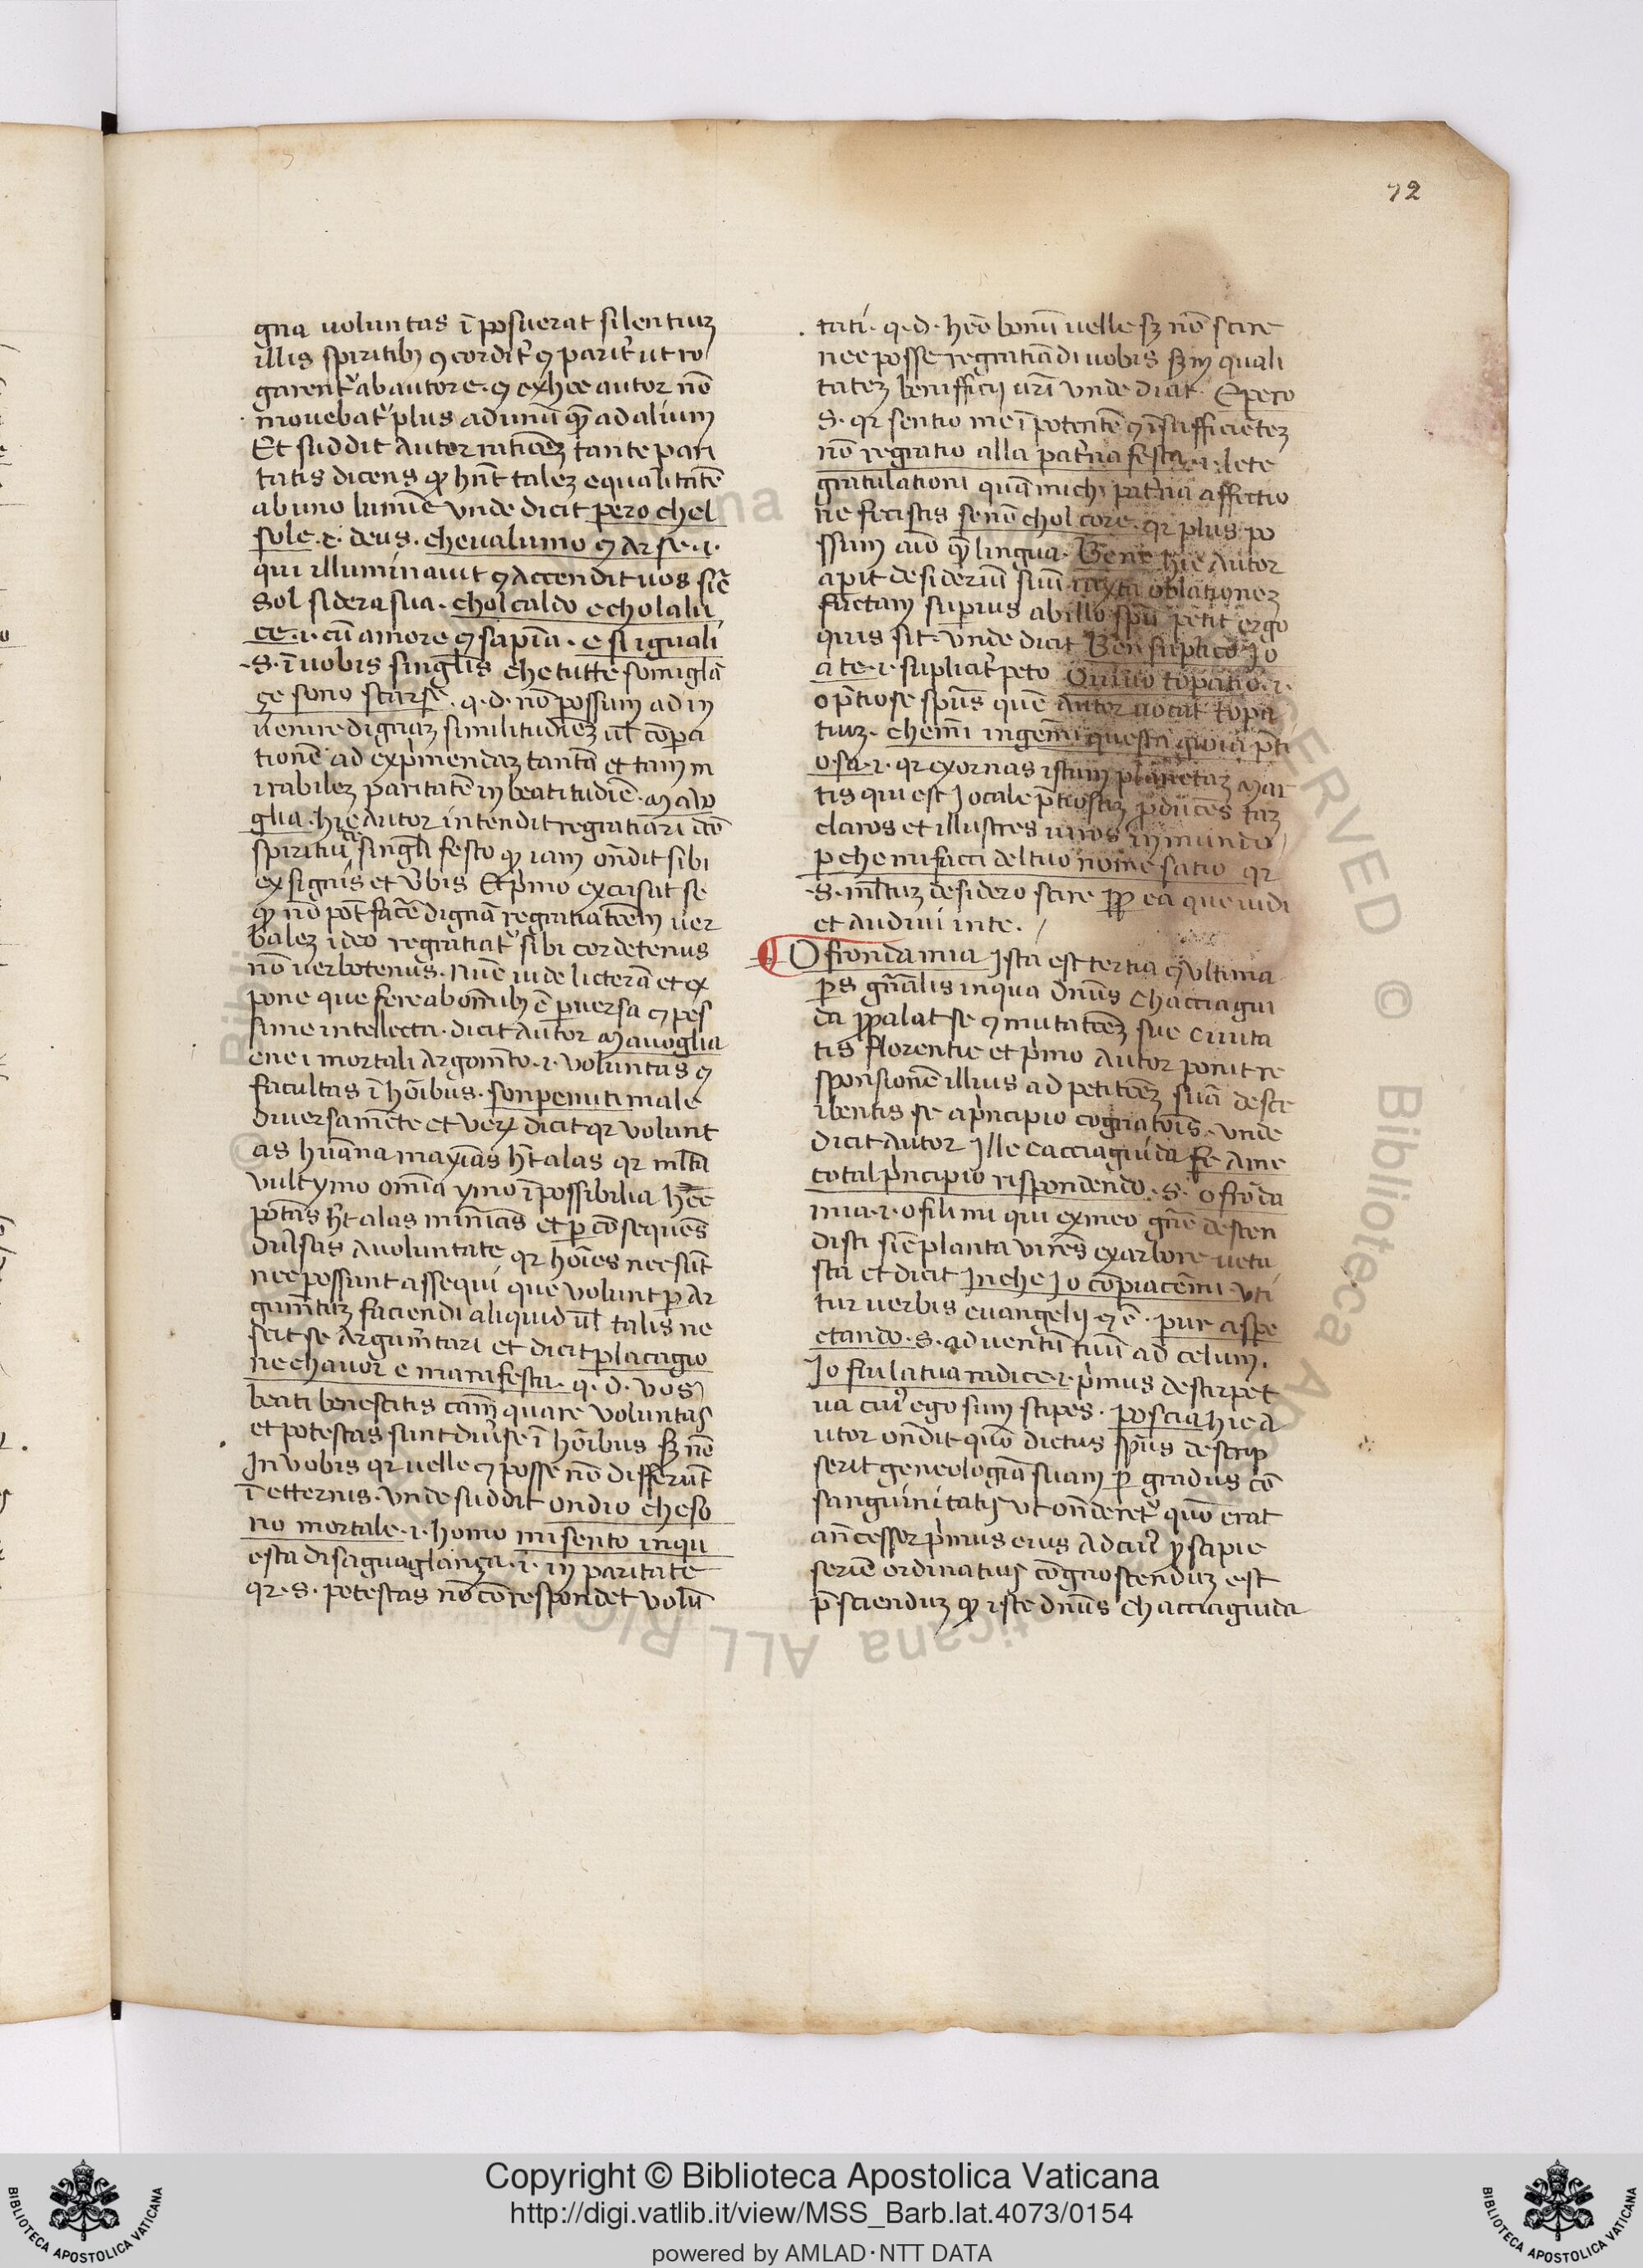 72
gna uoluntas ī posuerat silentiuʒ
illis spiritibʒ ꝯcorditˀ ꝯ paritˀ ut ro
garentˀ ab autore. ꝯ ex hec autor nō
mouebatˀ plus ad unū qᷓ ad alium
Et suddit autor rationeʒ tante pari
tatis dicens ꝙ hn̄t taleʒ equalitatē
ab uno lumīe vnde dicit pero chel
sole .i. deus. che ualumo ꝯ arse .i.
qui illuminauit ꝯ accendit uos sic̄
Sol sidera sua. chol caldo e chola lu
ce .i. cū amore ꝯ sapīa. e si iguali
.S. ī uobis singlis che tutte somiglā
çe sono scarse. q. d. nō possum ad in
uenire dignaʒ similitudīeʒ ul̄ cōpa
tionē ad exp̄mendaʒ tantā et tam m
irabileʒ paritatē in beatitudīe. Ma uo
glia. hic autor intendit regratiari idē
spiritū de singl̄i festo ꝙ iam on̄dit sibi
ex signis et v̄bis Et p̄mo excusat se
ꝙ nō pōt facē dignā regratiatōem uer
baleʒ ideo regratiatˀ sibi cordetenus
nō uerbotenus. Nūc uide licterā et ex
pone que fere ab omībʒ ē puersa ꝯ pes
sime intellecta. dicit autor Ma uoglia
ene i mortali argomēto .i. voluntas ꝯ
facultas ī hoībus. son penuti male
diuersamēte et veꝝ dicit qr volunt
as huāna maxīas ht̄ alas qr ml̄ta
vult ymo omīa ymo īpossibilia hec
potētias ht̄ alas minīas et per cōsequēs
diūsas a uoluntate qr hoīes nec sūt
nec possunt assequi que volunt per ar
gumētuʒ faciendi aliquid ul̄ talis ne
scit se argumētari et dicit pla cagio
ne cha uoi e manifesta. q. d. vos
beati bene scitis cam̄ quare voluntas
et potestas sunt diuise ī hoībus sʒ nō
In vobis qr uelle ꝯ posse nō differūt
ī etternis. vnde suddit ondio che so
no mortale .i. homo mi sento in qu
esta disaguaglança .i. in paritate
qr .S. potestas nō correspondet volū
tati. q. d. hēo bonū uelle sʒ nō scire
nec posse regratiādi uobis sʒm quali
tateʒ benifficij uri vnde dicit. E pero
S. qr sentio me īpotentē ꝯ īsufficiēteʒ
nō regratio alla paterna festa .i. lete
gratulationi quā michi pat̄na affectio
ne fecistis se nō chol core. qr plus po
ssum aīo qᷓ lingua. Bene hic autor
apit desideriū suū iuxta oblationeʒ
factam supius ab illo spū petit ergo
quis sit. vnde dicit Ben suplico Io
a te .i. suplicitˀ peto O uiuo topatio .i.
o p̄tiose spūs quē autor uocat topa
tiuʒ. chenn̄i ingēmi questa gioia p̄ti
osa .i. qr exornas istum planetaʒ mar
tis qui est Iocale p̄tiosūʒ pducēs taʒ
claros et illustres uiros in mundo
per che mi facci del tuo nome satio qr
.S. ml̄tuʒ desidero scire ꝓp ea que uidi
et audiui in te.
O fronda mia Ista est tertia ꝯ ultima
pars gn̄alis in qua dn̄us Chacciagui
da ꝓpalat se ꝯ mutatōeʒ sue ciuita
tis florentie et p̄mo autor ponit re
sponsionē illius ad petitōeʒ suā descr
ibentis se a principio cognatōis. vnde
dicit autor Ille cacciaguida fe a me
cotal principio rispondendo. S. o frōda
mia .i. o fili mi qui ex meo gn̄e descen
disti sic planta virēs ex arbore uetu
sta et dicit In che Io cōpiacēmi. vti
tur uerbis euangelij ꝯ ē. pur aspe
ctando. S. aduentū tuū ad celum.
Io fui la tua radice .i. p̄mus de stirpe t
ua cuiˀ ego sum stipes. poscia hic a
utor on̄dit quō dictus spūs descrip
serit geneologiā suam per gradus cō
sanguinitatis vt on̄deretˀ quō erat
an̄cessor p̄mus eius Ad cuiˀ ꝯ sapie
seriē ordinatius cōgnoscenduʒ est
p̄sciendum ꝙ iste dn̄us Chacciaguida
Copyright © Biblioteca Apostolica Vaticana
http://digi.vatlib.it/view/MSS_Barb.lat.4073/0154
powered by AMLAD·NTT DATA